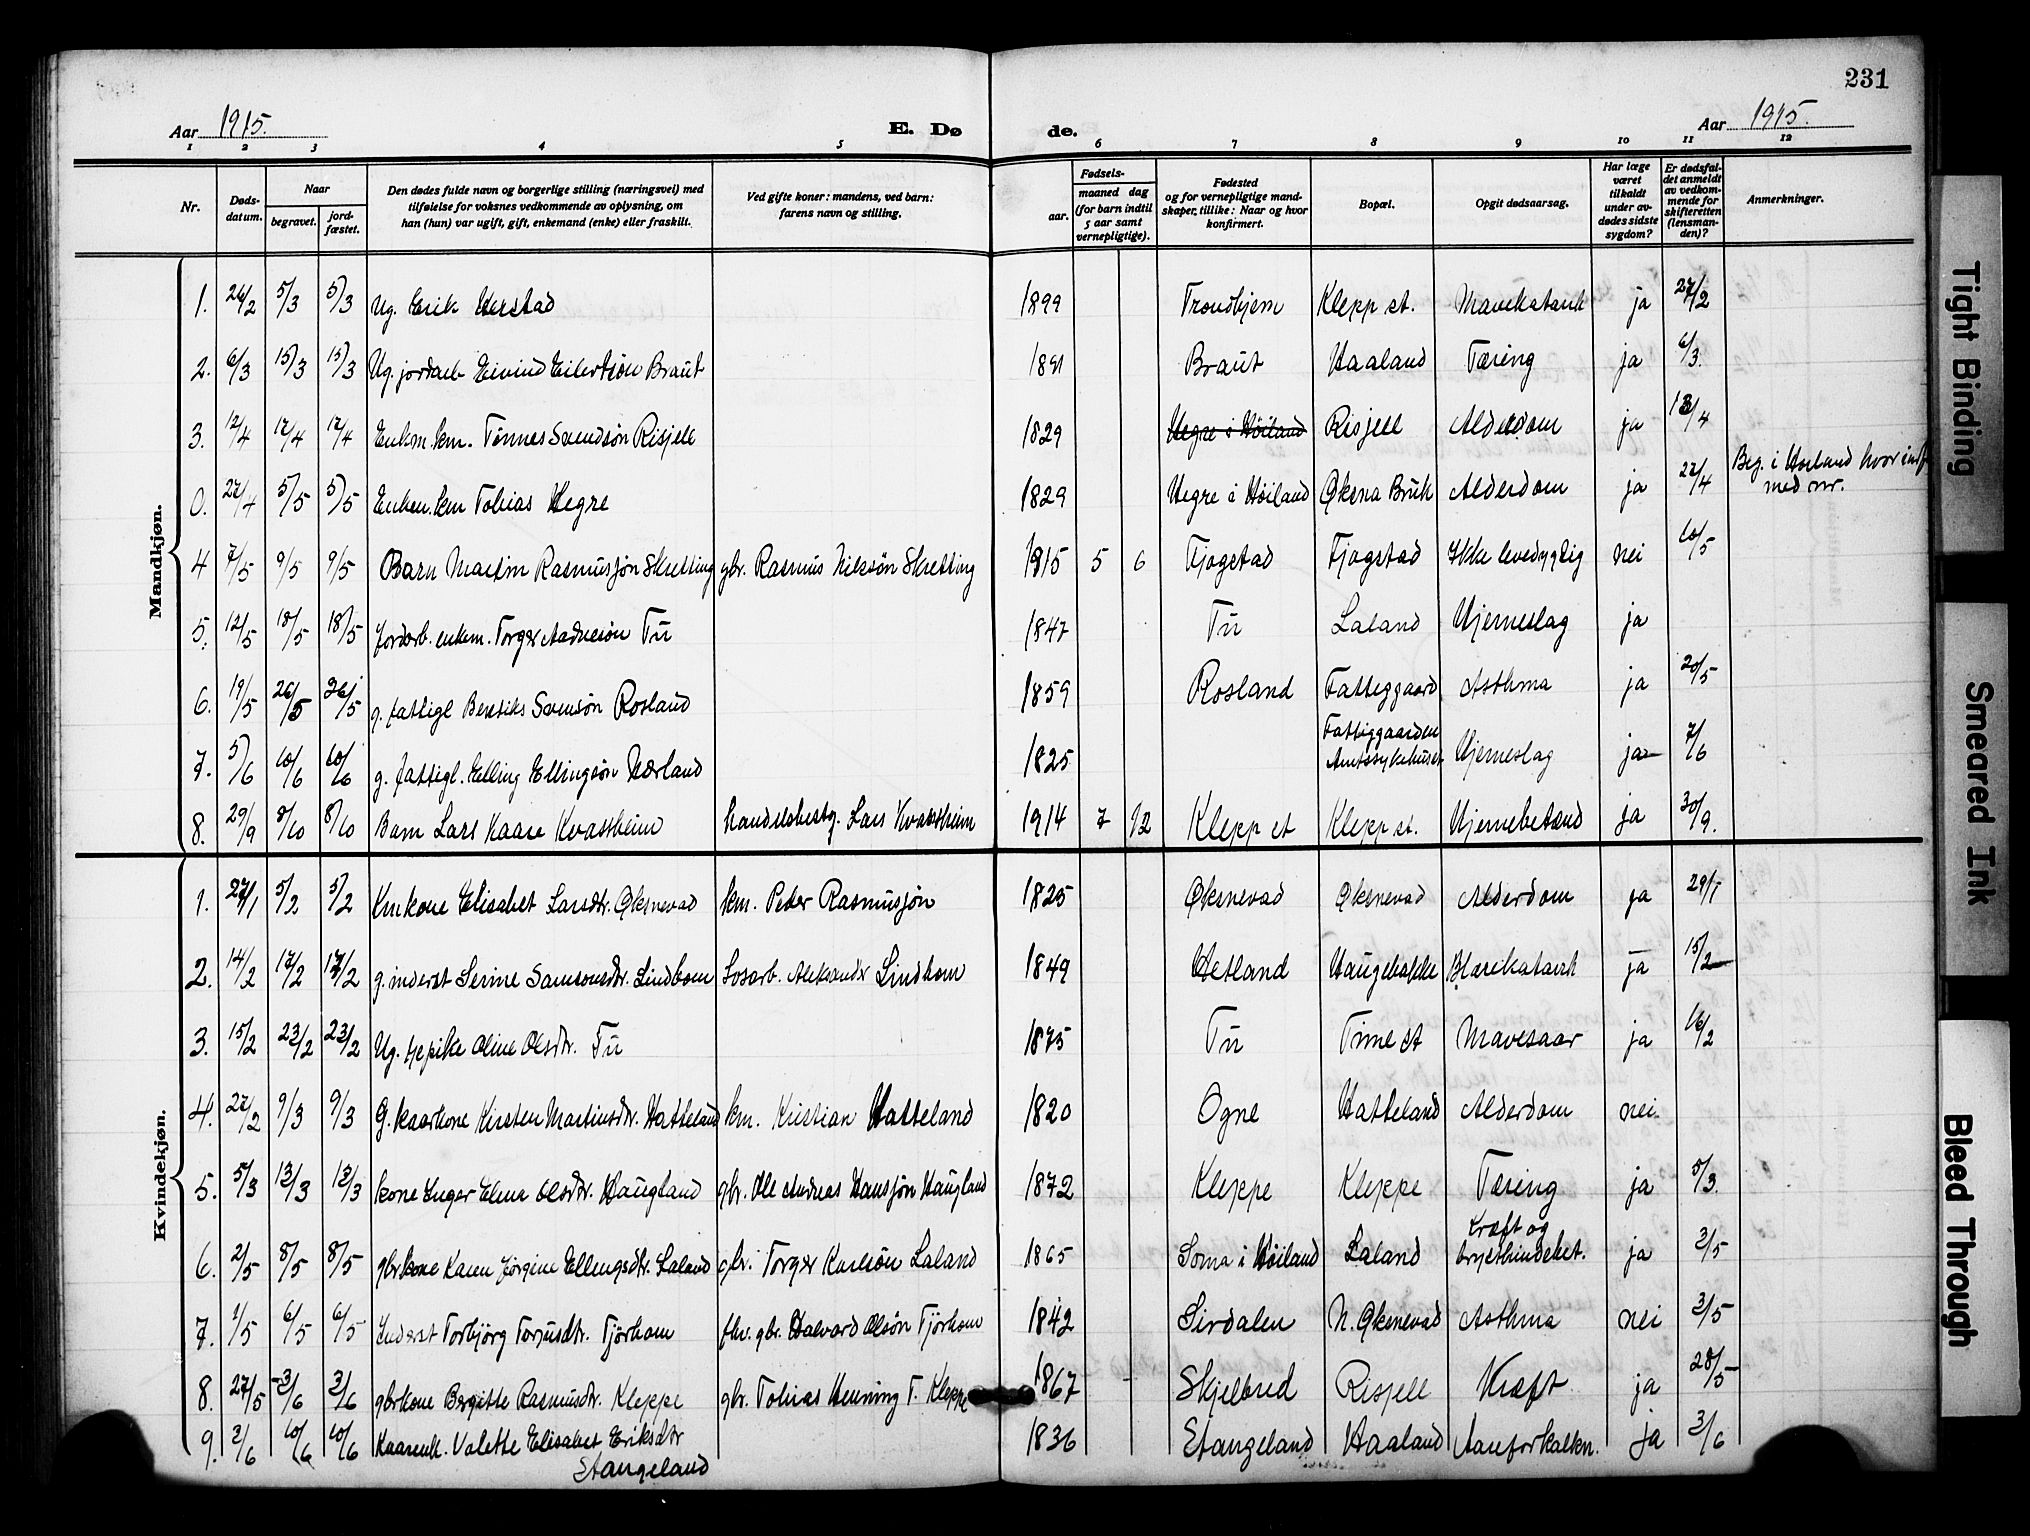 231
Aar 1915. E. Dø de. Aar 1915.
1 2 3 4 5 6 7 8 9 10 11 12
Nr. Dødsdatum. Naar begravet. jordfæstet. Den dødes fulde navn og borgerlige stilling (næringsvei) med tilføielse for voksnes vedkommende av oplysning, om han (hun) var ugift, gift, enkemand (enke) eller fraskilt. Ved gifte koner: mandens, ved barn: farens navn og stilling. Fødsels- aar. maaned dag (for barn indtil 5 aar samt vernepligtige). Fødested og for vernepligtige mandskaper, tillike: Naar og hvor konfirmert. Bopæl. Opgit dødsaarsag. Har læge været tilkaldt under avdødes sidste sygdom? Er dødsfaldet anmeldt av vedkommende for skifteretten (lensmanden)? Anmerkninger.
Mandkjøn.
1. 26/2 5/3 5/3 Ug. Erik Herstad 1899 Trondhjem Klepp st. Mavekatarrh ja 27/2
2. 6/3 15/3 15/3 Ug. jordarb Eivind Eilertsön Braut 1891 Braut Haaland Tæring ja 6/3.
3. 12/4 17/4 17/4 Enkm. km. Tönnes Svendsön Risjell 1829 Hegre i Höiland Risjell Alderdom ja 13/4
0. 27/4 5/5 5/5 Enkem. km Tobias Hegre 1829 Hegre i Höiland Öksna Bruk Alderdom ja 27/4 Beg. i Høiland hvor indf. med nr.
4 7/5 9/5 9/5 Barn Martin Rasmussön Skretting gbr. Rasmus Nilssön Skretting 1915 5 6 Fjogstad Fjogstad Ikke levedygtig nei 10/5
5. 12/5 18/5 18/5 Jordarb. enkm. Torger Aadnesön Tu 1847 Tu Laland Hjerneslag ja
6. 19/5 26/5 26/5 g. fattigl Svensön Rosland 1859 Rosland Fattiggaard Asthma ja 20/5
7. 5/6 10/6 10/6 g. fattigl. Elling Ellingsön Nærland 1825 Fattiggaarden Amtssykehuset Hjerneslag ja 7/6
8. 29/9 8/10 8/10 Barn Lars Kaare Kvassheim handelsbest. Lars Kvassheim 1914 7 12 Klepp st Klepp st. Hjernebetænd ja 30/9.
Kvindekjøn.
1. 27/1 5/2 5/2 Kmkone Elisabet Larsdtr. Øksnevad km. Peder Rasmussjön 1825 Øksnevad Øksnevad Alderdom ja 29/1
2. 14/2 17/2 17/2 g. inderst Serine Samsonsdtr. Lindbom Losarb. Aleksander Lindbom 1849 Hetland Haugebakke Blærekatarrh ja 15/2
3. 15/2 23/2 23/2 Ug. tjepike Oline Olsdtr. Tu 1875 Tu Time st Mavesaar ja 16/2
4. 27/2 9/3 9/3 G. kaarkone Kirsten Martinsdtr. Hatteland km. Kristian Hatteland 1820 Ogne Hatteland Alderdom nei
5. 5/3 13/3 13/3 kone Inger Elena Olsdtr. Haugland gbr. Ole Andreas Hansjön Haugland 1872 Kleppe Kleppe Tæring ja 5/3.
6. 2/5 8/5 8/5 gbrkone Karen Jörgine Ellingsdtr. Laland gbr. Torger Karlsön Laland 1865 Soma i Höiland Laland Kræft og brysthindebet. ja 3/5
7. 1/5 6/5 6/5 Inderst Torbjörg Torjusdtr. Tjörhom fhv. gbr. Halvard Olsön Tjörhom 1842 Sirdalen N. Øksnevad Asthma nei 3/5
8. 27/5 3/6 3/6 gbrkone Bergitte Rasmusdtr. Kleppe gbr. Tobias Henning T. Kleppe 1867 Skjelbred Risjell Kræft ja 28/5
9. 2/6 10/6 10/6 Kaarenk. Valette Elisabet Eriksdtr Stangeland 1836 Stangeland Haaland Aareforkalkn. ja 3/6
Tight Binding
Smeared Ink
Bleed Through